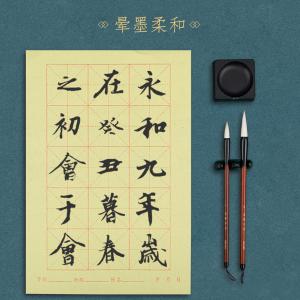 晕墨柔和
永和九年歲
在癸丑暮春
之初會于會